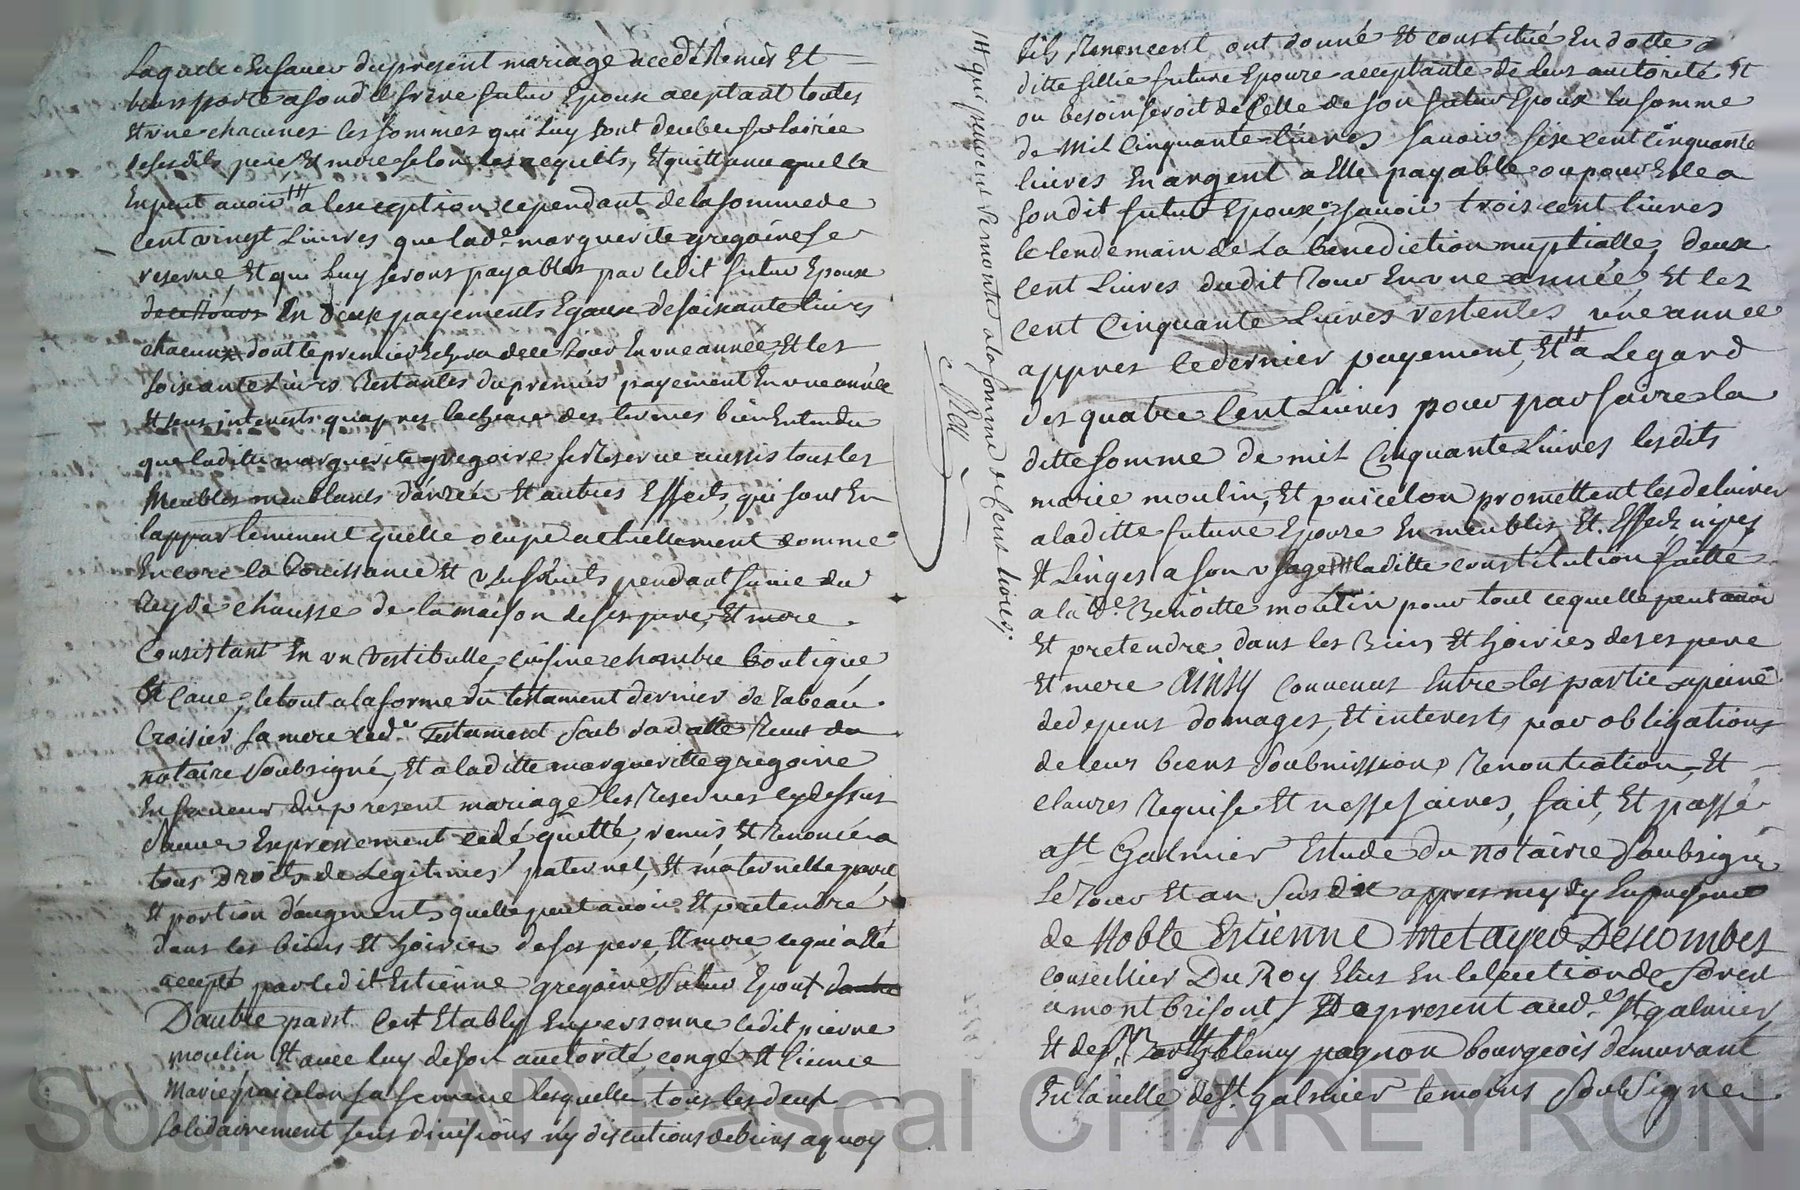 Laquelle En faveur du present mariage a cedé Remis Et
transporté a son dit frere futur Epoux aceptant toutes
Et une chacunes les sommes qui Luy sont deubes
de ses dits pere, Et mere selon les acquits, Et quittance quelle
En peut avoir a lexception cependant de la somme de
Cent vingt Livres que lad.e margueritte gregoire se
reserve, Et qui Luy seront payables par ledit futur Epoux
En deux payements Egaux de soixante Livres
chacuns dont le premier Echera de ce Jour En une année, Et les
soixante Livres Restantes du premier payement En une année
Et sans interests quapres lecheance des termes bien Entendu
que laditte margueritte gregoire se Reserve aussis tous les
Meubles meublants danrée Et autres Effects, qui sont En
lappartemment quelle ocupe actuellement comme
Encore la Jouissance Et usufruits pendant sa vie du
Rey de chausse de la maison de ses pere, Et mere
Consistant En un Vestibulle, cuisine chambre boutique
Et Cave, le tout a la forme du testament dernier de
Croisier sa mere led. Testament sans datte Receu du
notaire Soubsigné, Et a laditte margueritte gregoire
En faveur du present mariage les Reserves cy dessus
Expressement cedé, quitté, remis, Et Renoncé a
tous Droits de Legitimes paternel, Et maternelle part,
Et portion daugments quelle peut avoir Et pretendre
dans les biens Et hoiries de ses pere, Et mere, ce qui a été
accepté par ledit Estienne gregoire futur Epoux
Dautre part C'est Etably En personne ledit pierre
moulin Et avec luy de son auctorité congé Et Licence
Marie paicelon sa femme lesquelles tous les deux
solidairement sens divisions ny discutions de biens a quoy
Ils Renoncent ont donné Et constitué En dotte a
ditte fillie future Epouze acceptante de Leur auctorité Et
ou besoin seroit de Celle de son futur Epoux la somme
de Mil Cinquante Livres savoir six cent cinquante
livres En argent a Elle payable ou pour Elle a
son dit futur Epoux, savoir trois cent livres
le lendemain de La benediction nuptialle, deux
cent Livres dudit Jour En une année, Et les
cent Cinquante Livres restentes une année
appres le dernier payement, Et a Legard
des quatre Cent Livres pour parfaire la
ditte somme de mil Cinquante Livres les dits
marie moulin, Et paicelon promettent les delivrer
a laditte future Epouze En meubles Et Effects nipes
Et Linges a son usage laditte constitution faitte
a la d.e Benoitte moulin pour tout ce quelle peut avoir
Et pretendre dans les Biens Et hoiries de ses pere
Et mere Ainsy Convenus Entre les partie a peine
de depens domages, Et interests par obligations
de leurs biens Soubmissions Renontiation, Et
clauzes Requise Et nessesaires, fait, Et passé
a St Galmier Estude du notaire Soubsigné
le Jour Et an Susdit appres midy En presence
de Noble Estienne Metayer Descombes
conseillier Du Roy Elus En lelection de forest
a montbrisont De present aud. St galmier
Et de Sr Barthelemy pagnon bourgeois demurant
En la ville de St Galmier temoins Soubsigne
qui peuvent se monter a la somme de cent livres.
Source AD Pascal CHAREYRON